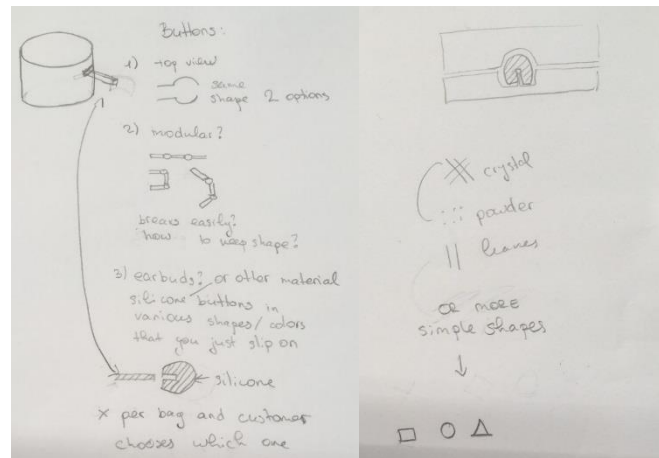 Buttons:
1) top view
same
shape 2 options
2) modular?
breaks easily?
how to keep shape?
3) earbuds? or other material
silicone buttons in
various shapes/colors
that you just slip on
silicone
x per bag and customer
chooses which one
crystal
powder
leaves
OR MORE
simple shapes